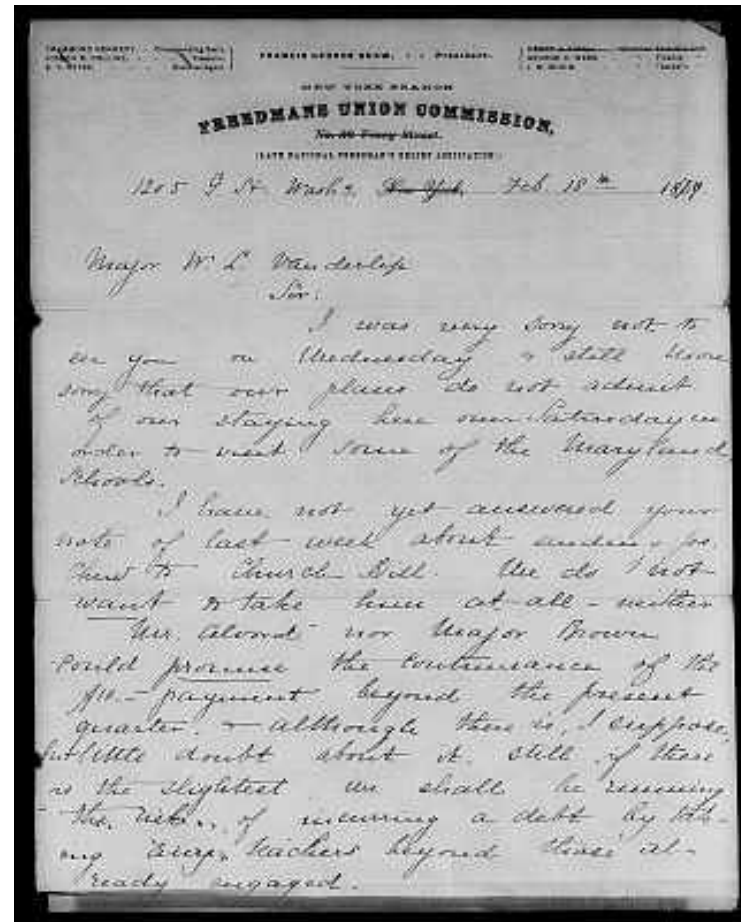 FRANCIS GEORGE SHAW, President.
NEW YORK BRANCH
FREEDMANS UNION COMMISSION,
No. 30 Vesey Street.
(LATE NATIONAL FREEDMAN'S RELIEF ASSOCIATION.)
1205 St. Wash. New York, Feb. 18th
Major W. L. Vanderlip
Sir:
I was very sorry not to
see you on Wednesday & still more
sorry that our plans do not admit
of our staying here over Saturday in
order to visit some of the Maryland
Schools.
I have not yet answered your
note of last week about
to Church Hill. We do not
want to take him at all - neither
Mr. Alvord nor Major Brown
could promise the continuance of the
$10.- payment beyond the present
quarter. & although there is, I suppose,
but little doubt about it, still if there
is the slightest we shall be running
the risk of incurring a debt by tak-
ing any teachers beyond those al-
ready engaged.